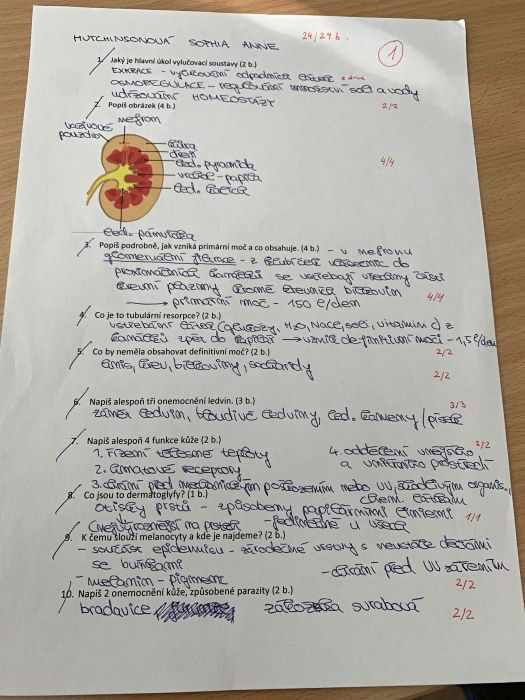 HUTCHINSONOVÁ SOPHIA ANNE
24/24 b.
1
1. Jaký je hlavní úkol vylučovací soustavy (2 b.)
EXKRACE - vylučování odpadních látek z dna
OSMOREGULACE - regulování množství solí a vody
udržování HOMEOSTÁZY
2/2
2. Popiš obrázek (4 b.)
vazivové pouzdro
nefron
kůra
dřeň
led. pyramida
vrchol - papila
led. kalich
led. pánvička
4/4
3. Popiš podrobně, jak vzniká primární moč a co obsahuje. (4 b.) - v nefronu
glomerulární filtrace - z klubíček vlásečnic do
proximálních kanálků se vstřebají všechny části
krevní plazmy kromě krevních bílkovin
→ primární moč - 150 l/den
4/4
4. Co je to tubulární resorpce? (2 b.)
vstřebání látek (glukózy, H₂O, NaCl, solí, vitamínů) z
kanálků zpět do kapilár → vzniká definitivní moč - 1,5 l/den
2/2
5. Co by neměla obsahovat definitivní moč? (2 b.)
hnis, krev, bílkoviny, sacharidy
2/2
6. Napiš alespoň tři onemocnění ledvin. (3 b.)
zánět ledvin, bludivé ledviny, led. kameny / písek
3/3
7. Napiš alespoň 4 funkce kůže (2 b.)
1. řízení tělesné teploty
4. oddělení vnějšího
a vnitřního prostředí
2/2
2. hmatové receptory
3. chrání před mechanickým poškozením nebo UV, škodlivými organis.,
chem. látkám
8. Co jsou to dermatoglyfy? (1 b.)
otisky prstů - způsobeny papilárními liniemi
(nejvýraznější na prstech - jedinečné u všech
1/1
9. K čemu slouží melanocyty a kde je najdeme? (2 b.)
- součást epidermisu - zárodečné vrstvy s neustále dělícími
se buňkami
- chrání před UV zářením
- melanin - pigment
2/2
10. Napiš 2 onemocnění kůže, způsobené parazity (2 b.)
bradavice
zákožka svrabová
2/2